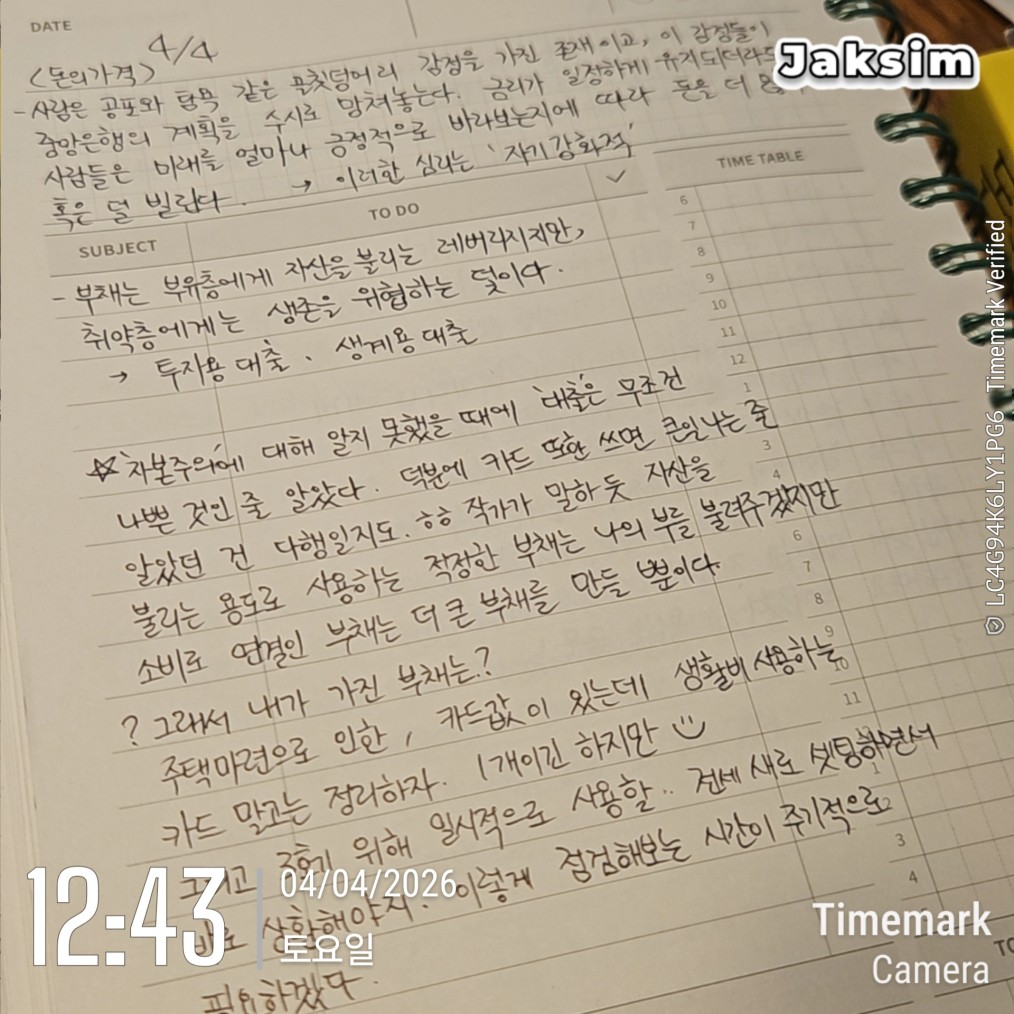 DATE
4/4
Jaksim
<돈의가격>
- 사람은 공포와 탐욕 같은 골칫덩어리 감정을 가진 존재이고, 이 감정들이
중앙은행의 계획을 수시로 망쳐놓는다. 금리가 일정하게 유지되더라도
사람들은 미래를 얼마나 긍정적으로 바라보는지에 따라 돈을 더
혹은 덜 빌린다. → 이러한 심리는 '자기강화적'
SUBJECT
TO DO
✓
TIME TABLE
- 부채는 부유층에게 자산을 불리는 레버리지지만,
취약층에게는 생존을 위협하는 덫이다.
→ 투자용 대출, 생계용 대출
☆ '자본주의'에 대해 알지 못했을 때에 '대출'은 무조건
나쁜 것인 줄 알았다. 덕분에 카드 또한 쓰면 큰일나는 줄
알았던 건 다행일지도. ㅎㅎ 작가가 말하듯 자산을
불리는 용도로 사용하는 적정한 부채는 나의 부를 불려주겠지만
소비로 연결인 부채는 더 큰 부채를 만들 뿐이다
? 그래서 내가 가진 부채는?
주택마련으로 인한, 카드값이 있는데 생활비 사용하는
카드 말고는 정리하자. 1개이긴 하지만
그리고 위해 일시적으로 사용할.. 전세 새로 셋팅하면서
바로 상환해야지. 이렇게 점검해보는 시간이 주기적으로
필요하겠다.
6
7
8
9
10
11
12
1
3
4
6
7
8
9
10
11
1
2
3
4
12:43
04/04/2026
토요일
Timemark
Camera
LC4G94K6LY1PG6 Timemark Verified